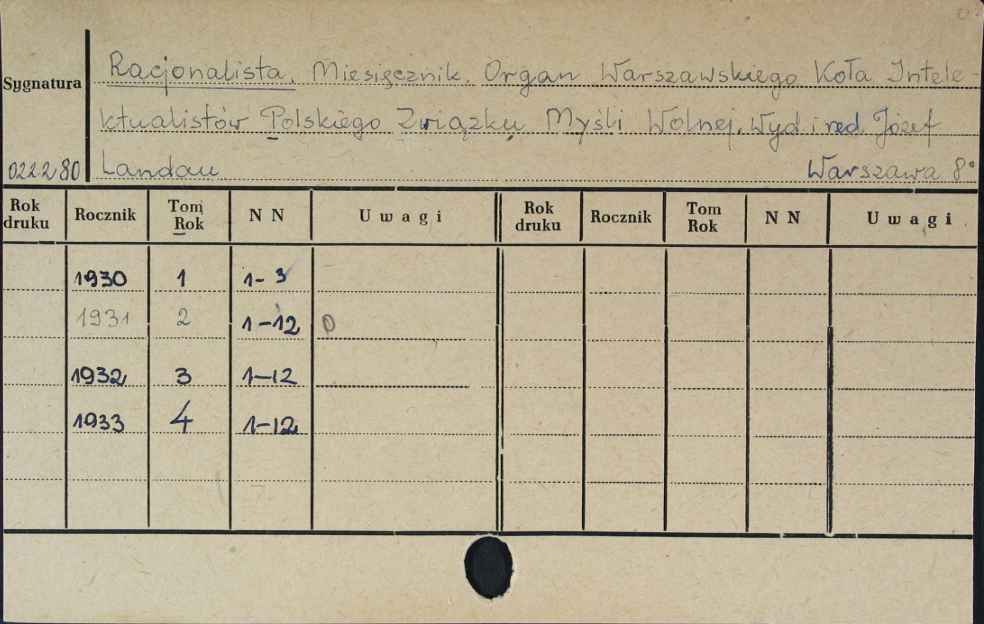 Racjonalista. Miesięcznik. Organ Warszawskiego Koła Intele-
Sygnatura
ktualistów Polskiego Związku Myśli Wolnej. Wyd. i red. Józef
022280 Landau. Warszawa 8°
Rok druku Rocznik Tom Rok NN Uwagi Rok druku Rocznik Tom Rok NN Uwagi
1930 1 1-3
1931 2 1-12 0
1932 3 1-12
1933 4 1-12